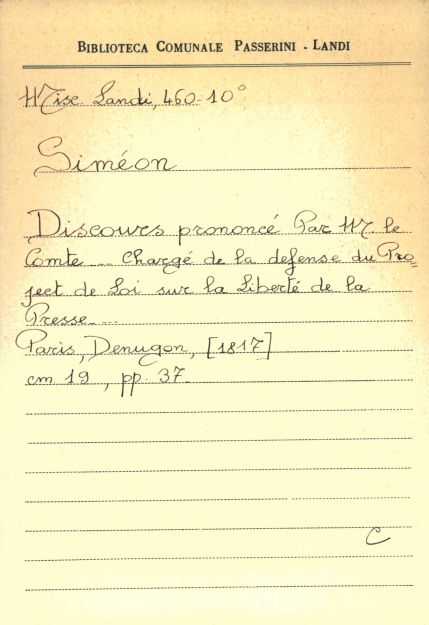 BIBLIOTECA COMUNALE PASSERINI - LANDI
Misc. Landi, 460-10°
Siméon
Discours prononcé Par M. le
Comte ... chargé de la defense du Pro=
ject de Loi sur la Liberté de la
Presse....
Paris, Denugon, [1817]
cm 19, pp. 37.
C